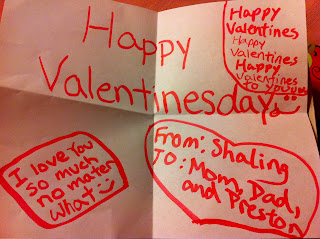 Happy
Valentinesday
Happy
Valentines
Happy
Valentines
Happy
Valentines
To you
I love you
so much
no mater
what
From: Shaling
To: Mom, Dad,
and Preston